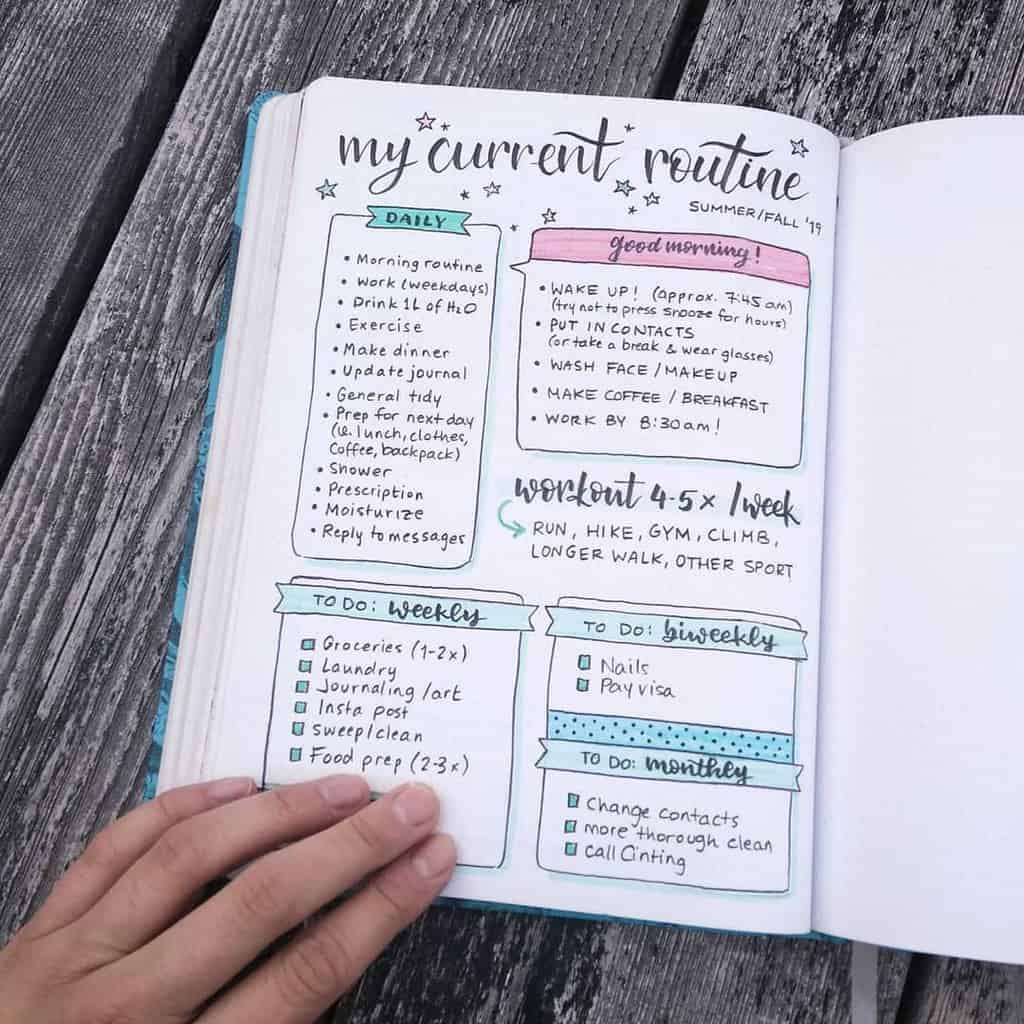 my current routine
SUMMER/FALL '19
DAILY
• Morning routine
• Work (weekdays)
• Drink 1L of H₂O
• Exercise
• Make dinner
• Update journal
• General tidy
• Prep for next day
(ie. lunch, clothes,
coffee, backpack)
• Shower
• Prescription
• Moisturize
• Reply to messages
good morning!
• WAKE UP! (approx. 7:45 am)
(try not to press snooze for hours)
• PUT IN CONTACTS
(or take a break & wear glasses)
• WASH FACE / MAKEUP
• MAKE COFFEE / BREAKFAST
• WORK BY 8:30 am!
workout 4-5x /week
RUN, HIKE, GYM, CLIMB,
LONGER WALK, OTHER SPORT
TO DO: weekly
Groceries (1-2x)
Laundry
Journaling /art
Insta post
sweep/clean
Food prep (2-3x)
TO DO: biweekly
Nails
Pay visa
TO DO: monthly
Change contacts
more thorough clean
call